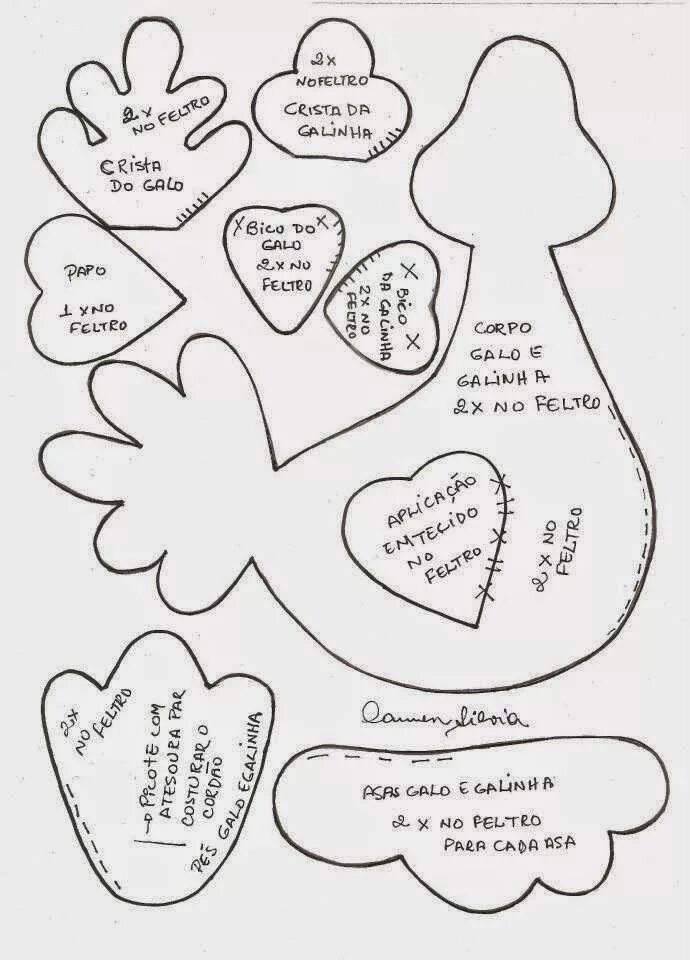 2x
NO FELTRO
CRISTA
DO GALO
2x
NO FELTRO
CRISTA DA
GALINHA
PAPO
1 x NO
FELTRO
X BICO DO X
GALO
2x NO
FELTRO
X BICO X
DA GALINHA
2x NO
FELTRO
CORPO
GALO E
GALINHA
2x NO FELTRO
APLICAÇÃO
EM TECIDO
NO
FELTRO
2x NO
FELTRO
2x
NO FELTRO
PICOTE COM
A TESOURA PAR
COSTURAR O
CORDÃO
PÉS GALO E GALINHA
Carmen Silvia
ASAS GALO E GALINHA
2 x NO FELTRO
PARA CADA ASA